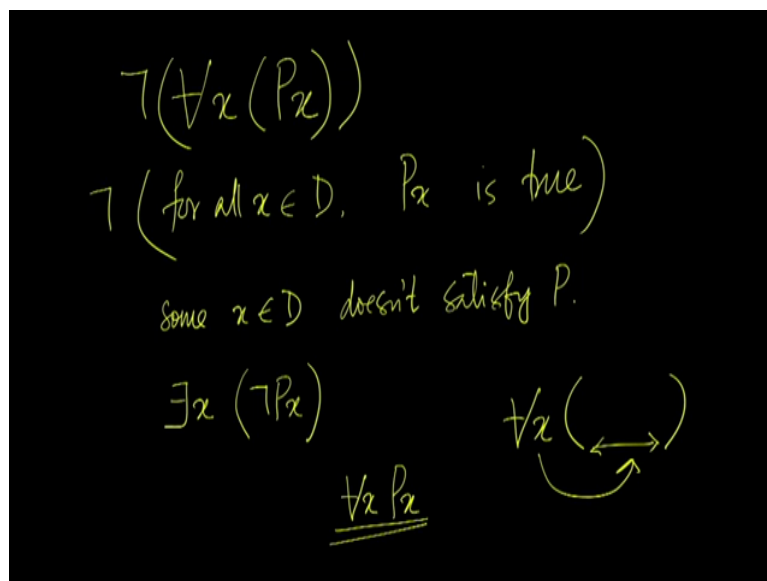 ¬(∀x(Px))
¬(for all x ∈ D, Px is true)
some x ∈ D doesn't satisfy P.
∃x (¬Px)
∀x( )
∀x Px